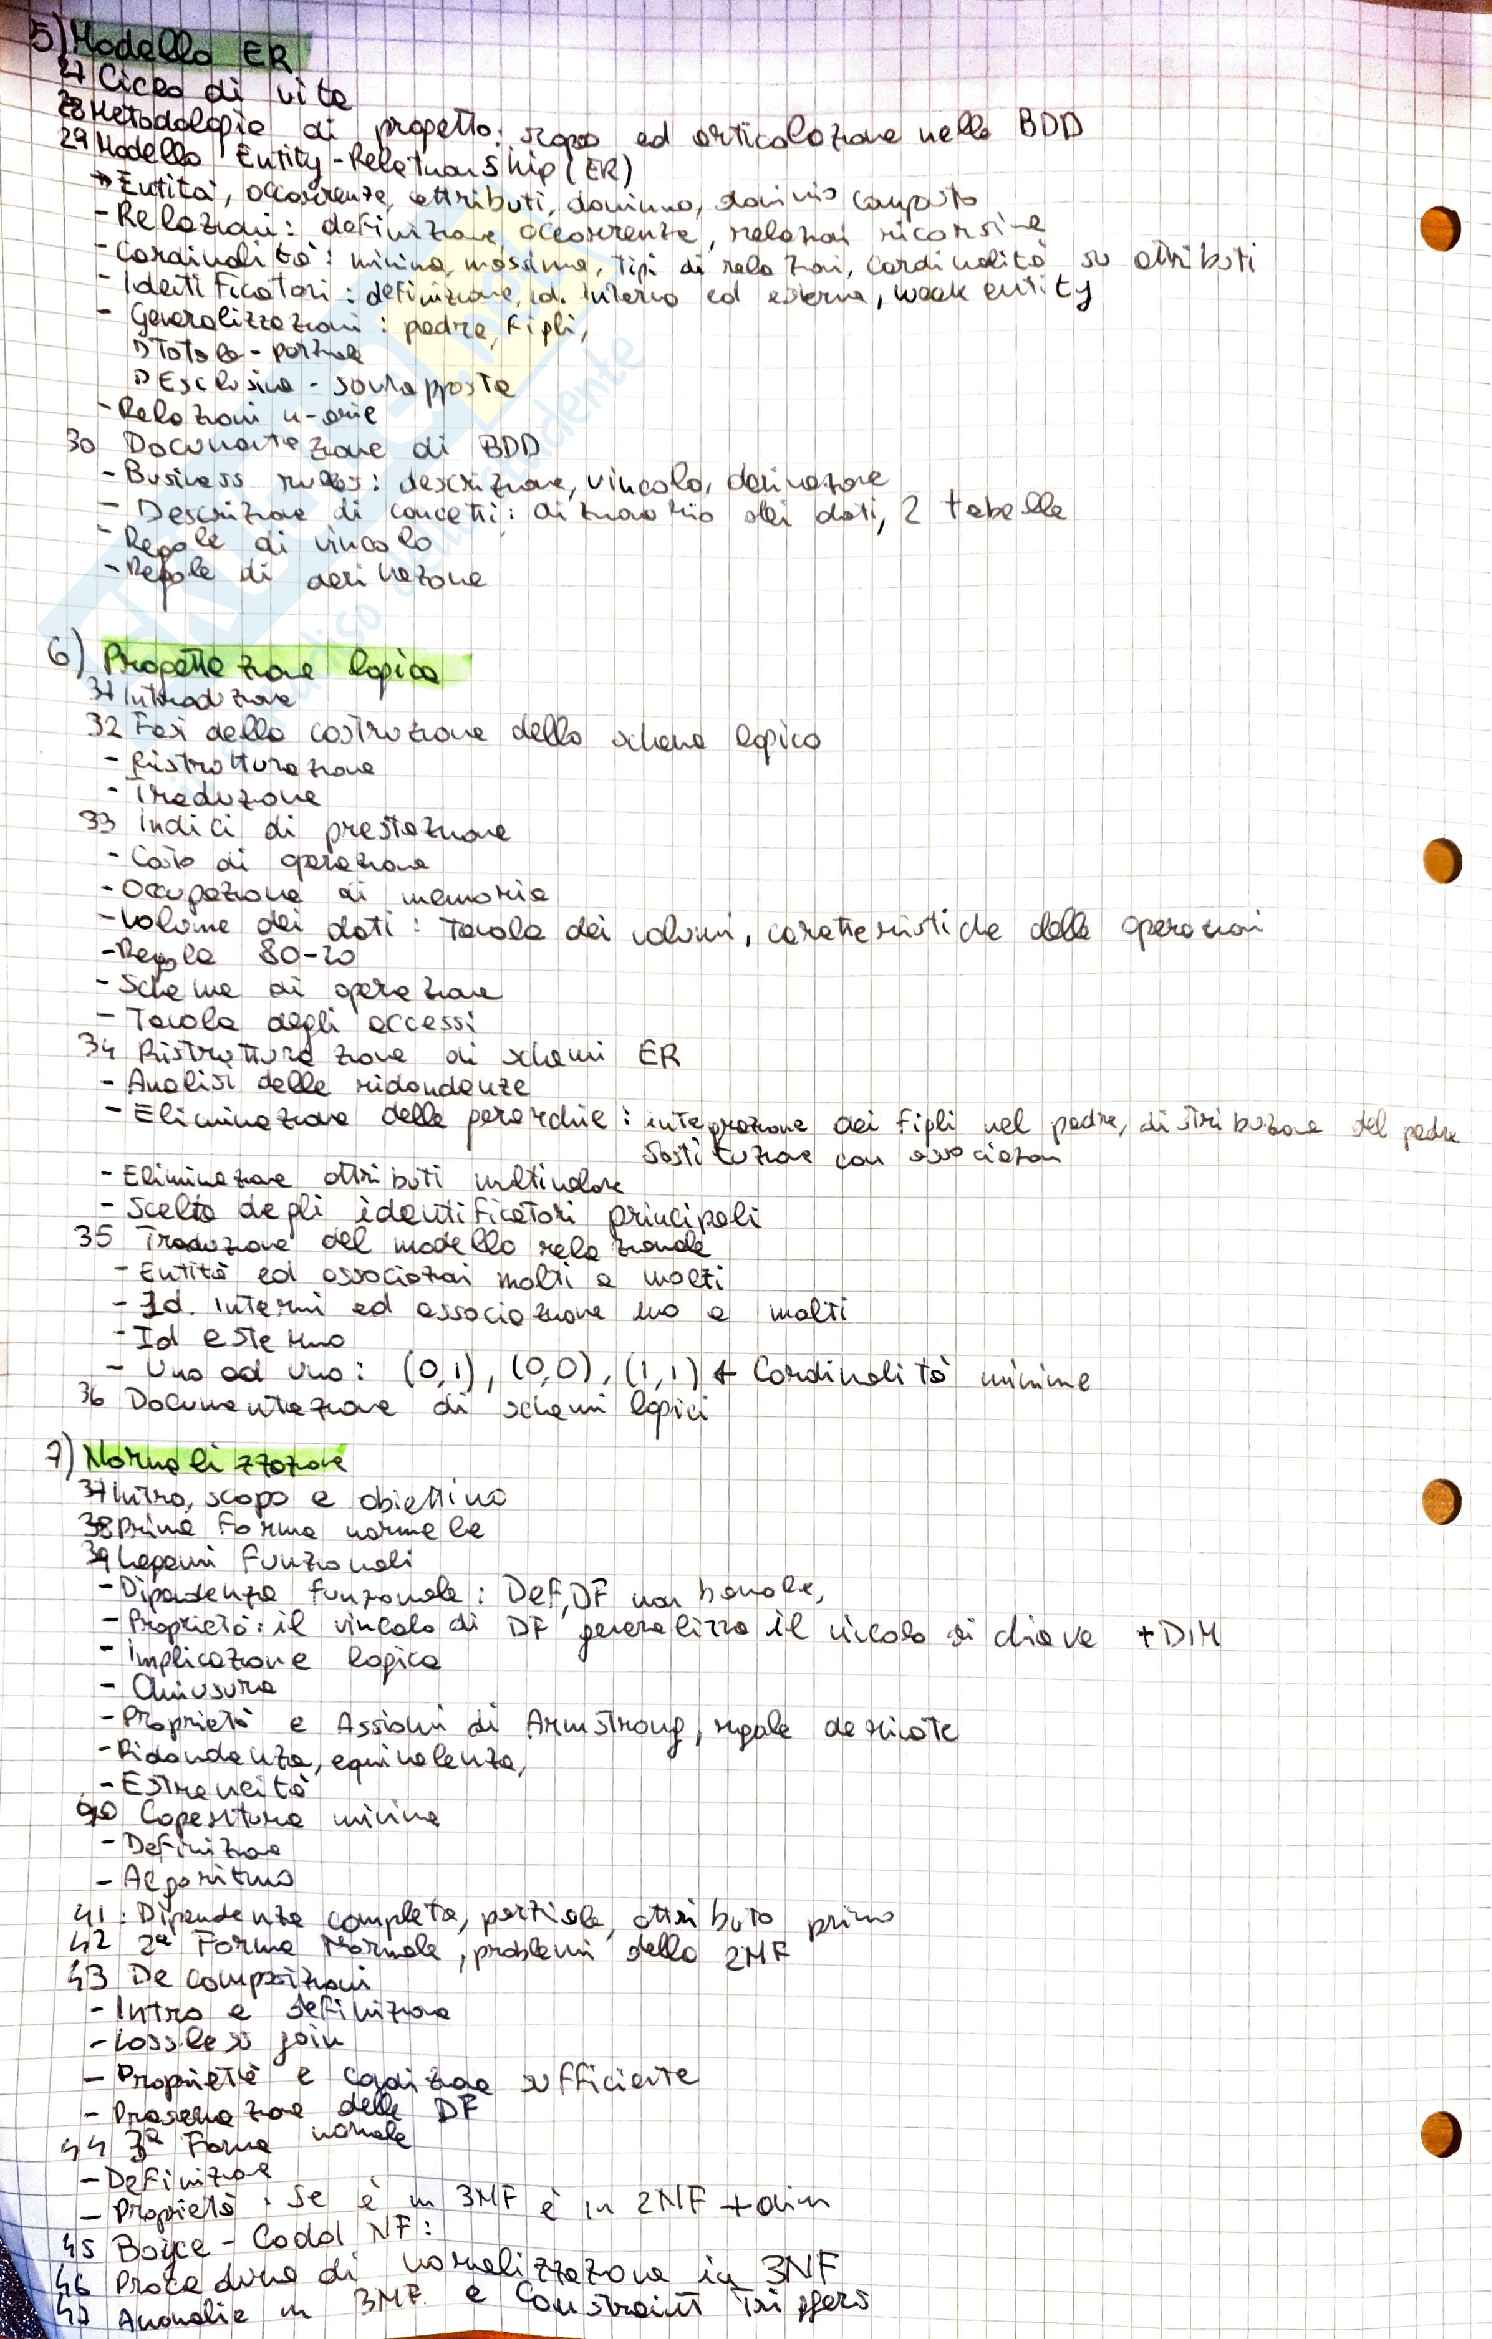 5) Modello ER
27 Ciclo di vita
28 Metodologie di progetto: scopo ed articolazione nelle BDD
29 Modello Entity-Relationship (ER)
→ Entità, occorrenze, attributi, dominio, dominio composto
- Relazioni: definizione, occorrenze, relazioni ricorsive
- Cardinalità: minima, massima, tipi di relazioni, cardinalità su attributi
- Identificatori: definizione, id. interno ed esterno, weak entity
- Generalizzazioni: padre, figli,
▷ Totale - parziale
▷ Esclusiva - sovrapposta
- Relazioni n-arie
30 Documentazione di BDD
- Business rules: descrizione, vincolo, derivazione
- Descrizione di concetti: dizionario dei dati, 2 tabelle
- Regole di vincolo
- Regole di derivazione
6) Progettazione logica
31 Introduzione
32 Fasi della costruzione dello schema logico
- Ristrutturazione
- Traduzione
33 Indici di prestazione
- Costo di operazione
- Occupazione di memoria
- Volume dei dati: Tavola dei volumi, caratteristiche delle operazioni
- Regola 80-20
- Schema di operazione
- Tavola degli accessi
34 Ristrutturazione di schemi ER
- Analisi delle ridondanze
- Eliminazione delle gerarchie: integrazione dei figli nel padre, distribuzione del padre
Sostituzione con associazioni
- Eliminazione attributi multivalore
- Scelta degli identificatori principali
35 Traduzione del modello relazionale
- Entità ed associazioni molti a molti
- Id. interni ed associazione uno a molti
- Id esterno
- Uno ad uno: (0,1), (0,0), (1,1) ← Cardinalità minime
36 Documentazione di schemi logici
7) Normalizzazione
37 Intro, scopo e obiettivo
38 Prima Forma normale
39 Legami Funzionali
- Dipendenza funzionale: Def, DF non banale,
- Proprietà: il vincolo di DF generalizza il vincolo di chiave +DIM
- Implicazione logica
- Chiusura
- Proprietà e Assiomi di Armstrong, regole derivate
- Ridondanza, equivalenza,
- Estraneità
40 Copertura minima
- Definizione
- Algoritmo
41: Dipendenza completa, parziale, attributo primo
42 2ª Forma Normale, problemi della 2NF
43 Decomposizioni
- Intro e definizione
- Lossless join
- Proprietà e condizione sufficiente
- Preservazione delle DF
44 3ª Forma normale
- Definizione
- Proprietà: Se è in 3NF è in 2NF + dim
45 Boyce-Codd NF:
46 Procedura di normalizzazione in 3NF
47 Anomalie in 3NF e Constraint Triggers